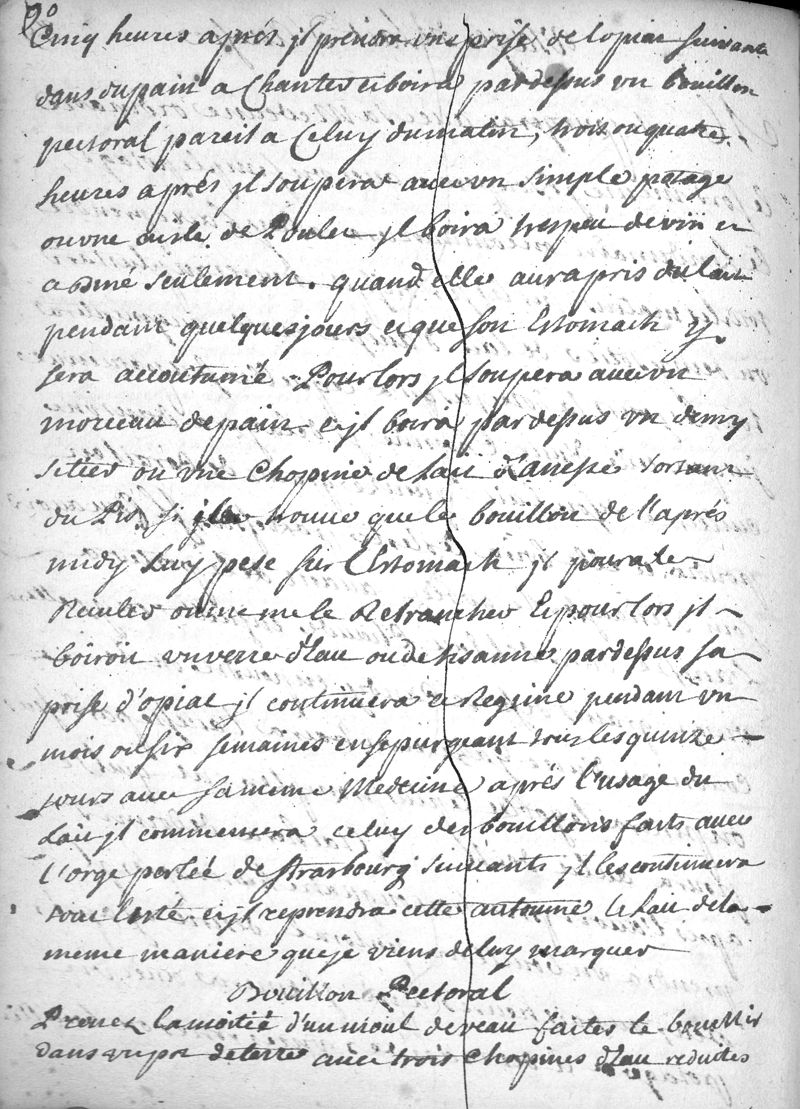 2o
Cinq heures aprés jl prendra une prise de lopiat suivante
dans du pain a Chanter et boira par dessus un bouillon
pectoral pareil a Celuy du matin, trois ou quatre
heures aprés jl soupera avec un simple potage
ou une de Poulet jl boira tres peu de vin et
a diné seulement. quand elle aura pris du lait
pendant quelques jours et que son Estomach y
sera accoutumé Pour lors jl soupera avec un
morceau de pain et jl boira par dessus un demy
setier ou une Chopine de Lait d'anesse sortant
du Pis si jl trouve que le bouillon de l'aprés
midy Luy pese sur l'Estomach jl poura le
Reculer ou meme le Retrancher Et pour lors jl
boiroit un verre d'Eau ou de tisanne par dessus sa
prise d'opiat jl continuera ce Regime pendant un
mois ou six semaines en se purgeant tous les quinze
jours avec sa meme Medecine aprés l'usage du
Lait jl commencera celuy des bouillons faits avec
l'orge perlée de strasbourg suivants jl les continuera
tout l'esté et jl reprendra cette automne le Lait de la
meme maniere que je viens de luy marquer
Bouillon Pectoral
Prenez la moitié d'un mou de veau faites le bouillir
dans un pot de terre avec trois Chopines d'Eau reduites